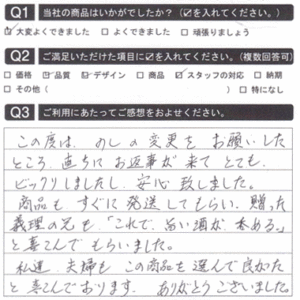 Q1 当社の商品はいかがでしたか？（☑を入れてください。）
☑大変よくできました □よくできました □頑張りましょう
Q2 ご満足いただけた項目に☑を入れてください。（複数回答可）
□価格 ☑品質 ☑デザイン □商品 ☑スタッフの対応 □納期
□その他（ ） □特になし
Q3 ご利用にあたってご感想をおよせください。
この度は、のしの変更をお願いした
ところ、直ちにお返事が来てとても
ビックリしましたし、安心致しました。
商品もすぐに発送してもらい、贈った
義理の兄も、「これで、旨い酒が呑める。」
と喜こんでもらいました。
私達、夫婦もこの商品を選んで良かった
と喜んでおります。ありがとうございました。